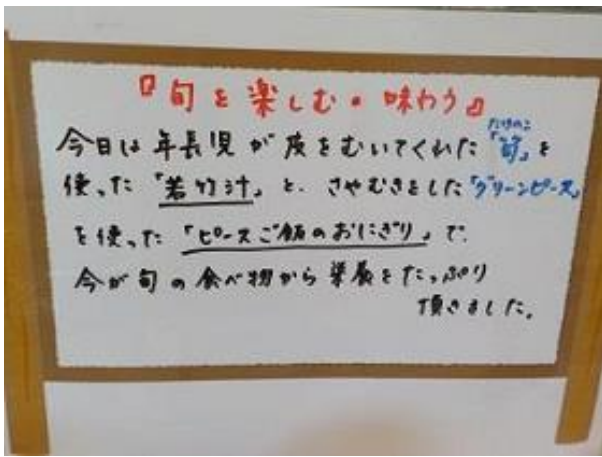 『旬を楽しむ・味わう』
今日は年長児が皮をむいてくれた「筍」を
たけのこ
使った「若竹汁」と、さやむきをした「グリーンピース」
を使った「ピースご飯のおにぎり」で、
今が旬の食べ物から栄養をたっぷり
頂きました。